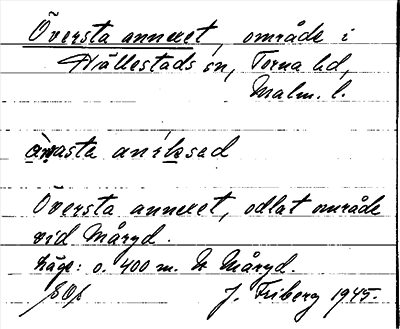 Översta annexet, område i
Hällestads sn, Torna hd,
Malm. l.
Översta annexet, odlat område
vid Måryd.
Läge: o. 400 m. N Måryd.
J. Friberg 1945.